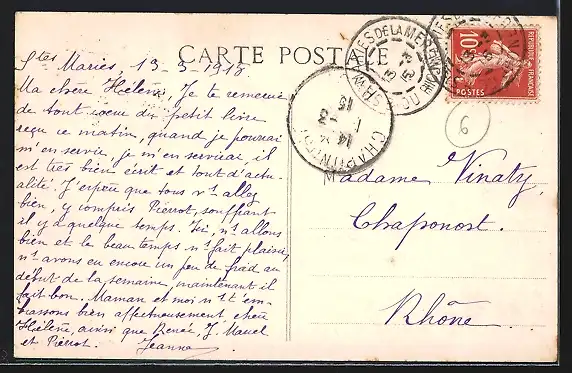 CARTE POSTALE
Stes Maries, 13-3-1918.
Ma chère Hélène, Je te remercie
de tout coeur du petit livre
reçu ce matin, quand je pourrai
m'en servir, je m'en servirai, il
est très bien écrit et tout d'actu-
alité. J'espère que tous vs allez
bien, y compris Pierrot, souffrant
il y a quelque temps. Ici, ns allons
bien et le beau temps ns fait plaisir,
ns avons eu encore un peu de froid au
début de la semaine, maintenant il
fait bon. Maman et moi ns t' em-
brassons bien affectueusement chère
Hélène, ainsi que Renée, J.
et Pierrot. Jeanne
STES MARIES DE LA MER
CHAPONOST
14
-3
10
POSTES
REPUBLIQUE FRANÇAISE
9
Madame Vinaty,
Chaponost.
Rhône.